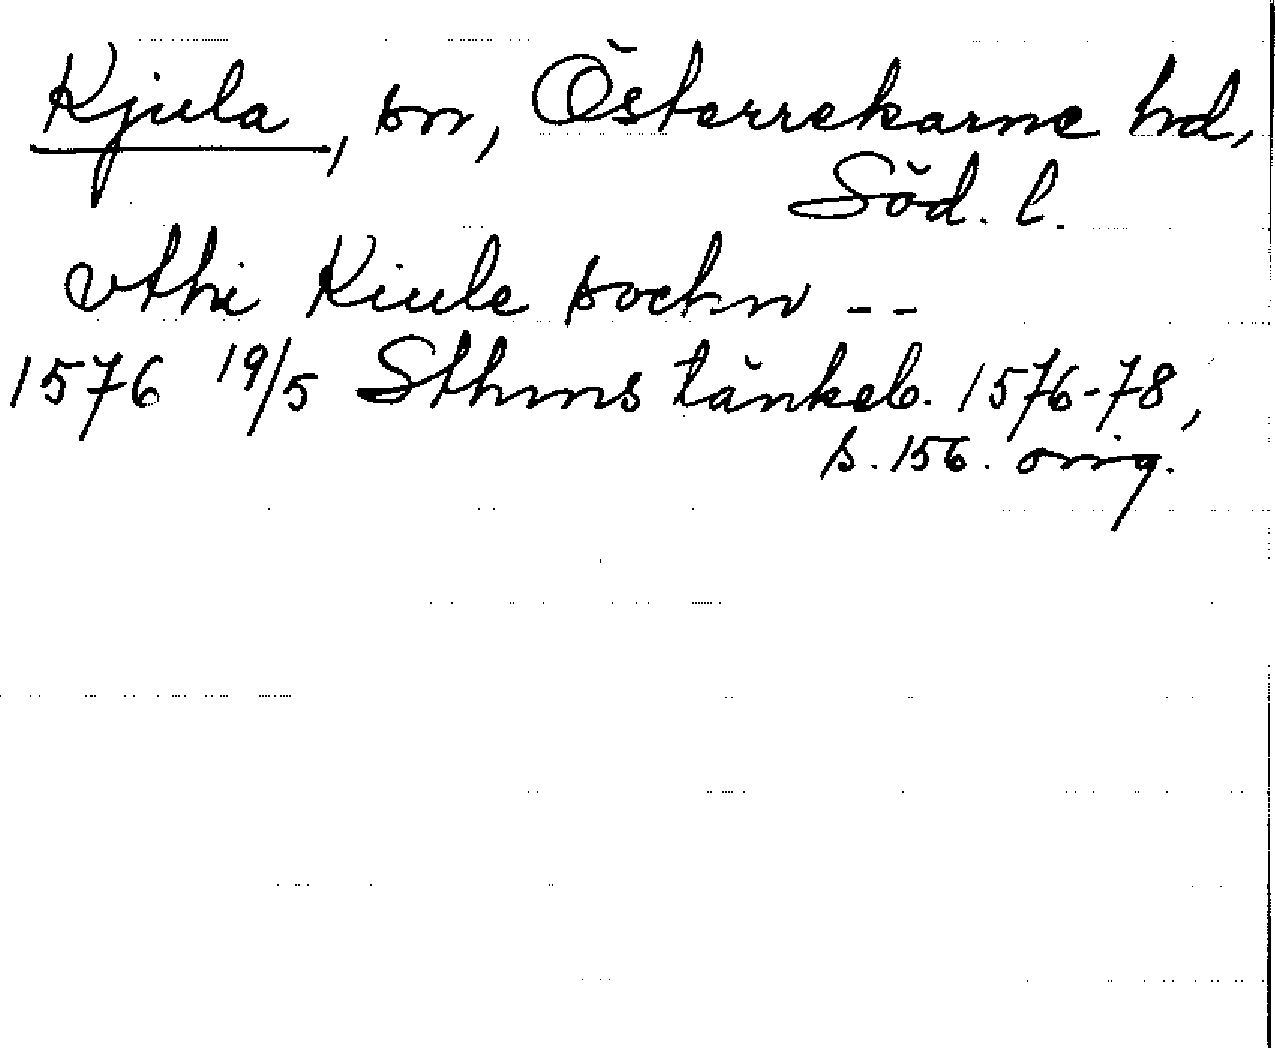 Kjula, sn, Österrekarne hd,
Söd. l.
vthi Kiule sochn --
1576 19/5 Sthms tänkeb. 1576-78,
s. 156. orig.